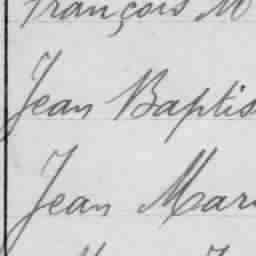 François M
Jean Baptis
Jean Mar